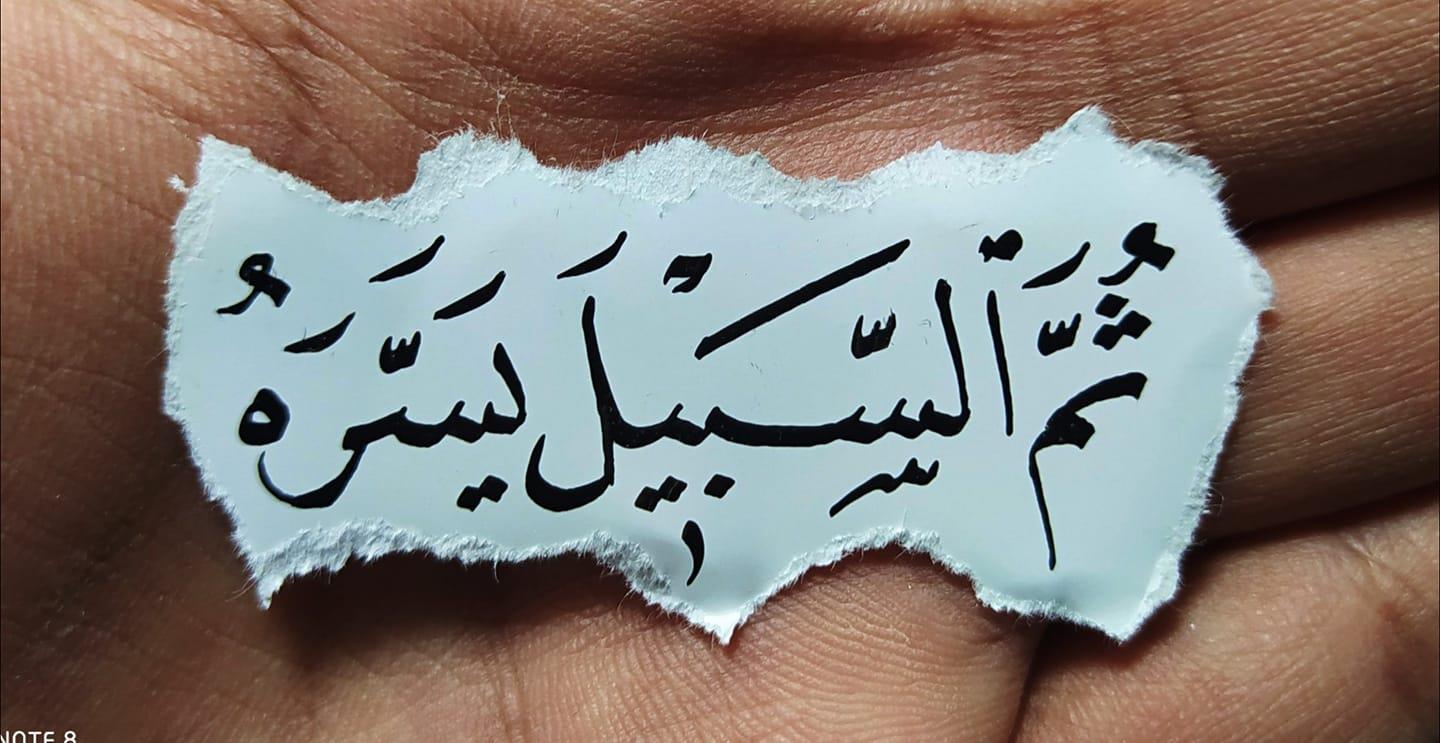 ثُمَّ ٱلسَّبِيلَ يَسَّرَهُ
NOTE 8